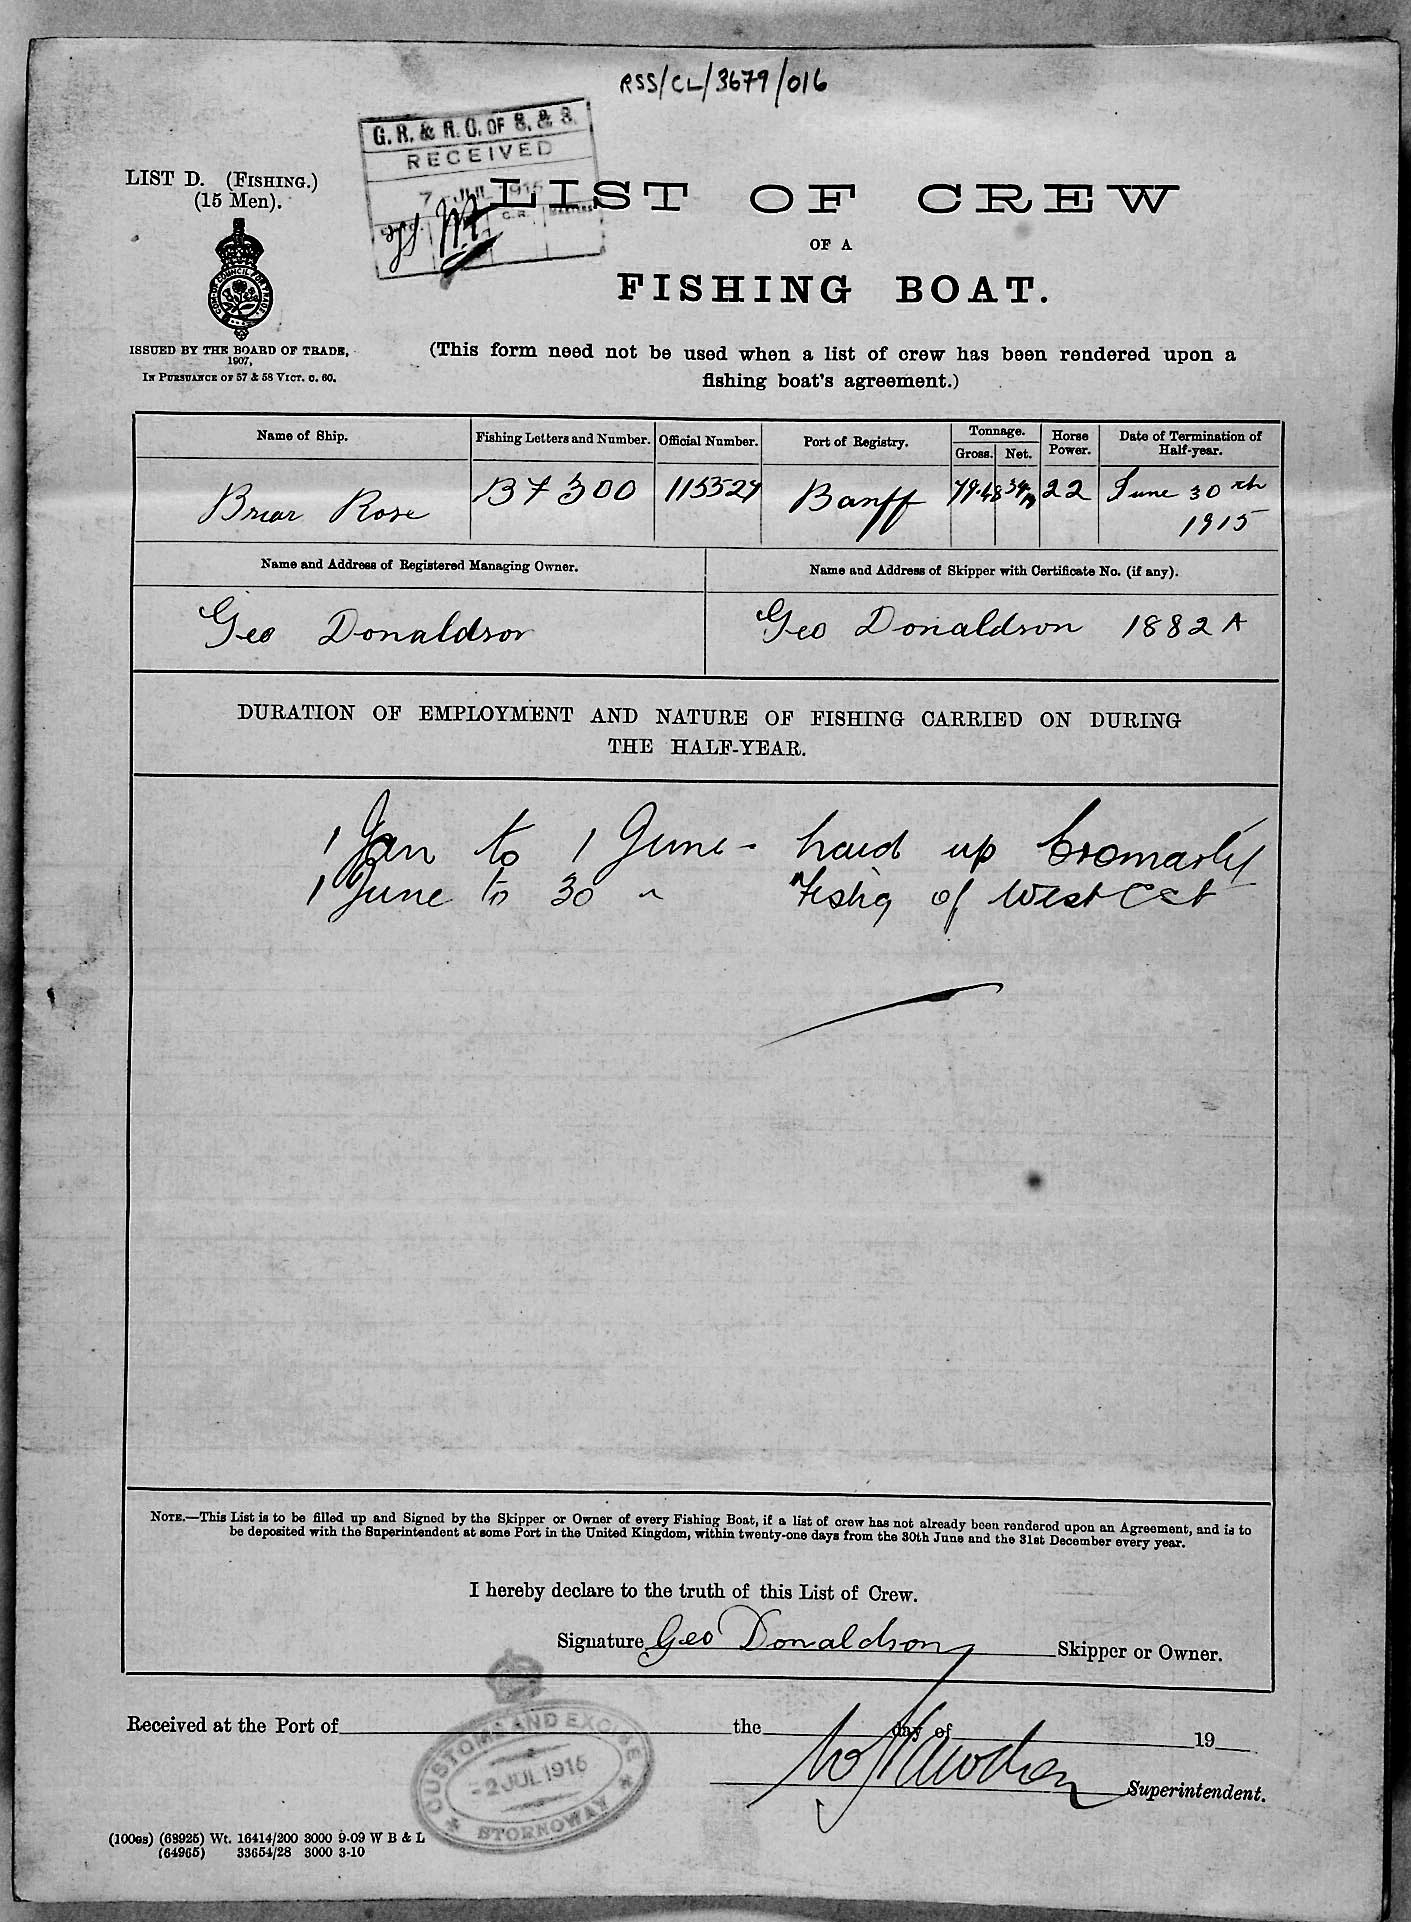 RSS/CL/3679/016
G. R. & R. O. OF S. & S.
RECEIVED
7 JUL 1915
C.R.
LIST D. (FISHING.)
(15 Men).
LIST OF CREW
OF A
FISHING BOAT.
ISSUED BY THE BOARD OF TRADE,
1907,
IN PURSUANCE OF 57 & 58 VICT. C. 60.
(This form need not be used when a list of crew has been rendered upon a
fishing boat's agreement.)
Name of Ship. Fishing Letters and Number. Official Number. Port of Registry. Tonnage. Gross. Net. Horse Power. Date of Termination of Half-year.
Briar Rose BF 300 115327 Banff 79.48 22 June 30th
1915
Name and Address of Registered Managing Owner. Name and Address of Skipper with Certificate No. (if any).
Geo Donaldson Geo Donaldson 1882 A
DURATION OF EMPLOYMENT AND NATURE OF FISHING CARRIED ON DURING
THE HALF-YEAR.
1 Jan to 1 June - haud up Cromarty
1 June to 30 " Fishg of West Cst
NOTE.—This List is to be filled up and Signed by the Skipper or Owner of every Fishing Boat, if a list of crew has not already been rendered upon an Agreement, and is to
be deposited with the Superintendent at some Port in the United Kingdom, within twenty-one days from the 30th June and the 31st December every year.
I hereby declare to the truth of this List of Crew.
Signature Geo Donaldson Skipper or Owner.
Received at the Port of the day of 19
CUSTOMS AND EXCISE
2 JUL 1915
STORNOWAY
Superintendent.
(100es) (68925) Wt. 16414/200 3000 9-09 W B & L
(64965) 33654/28 3000 3-10